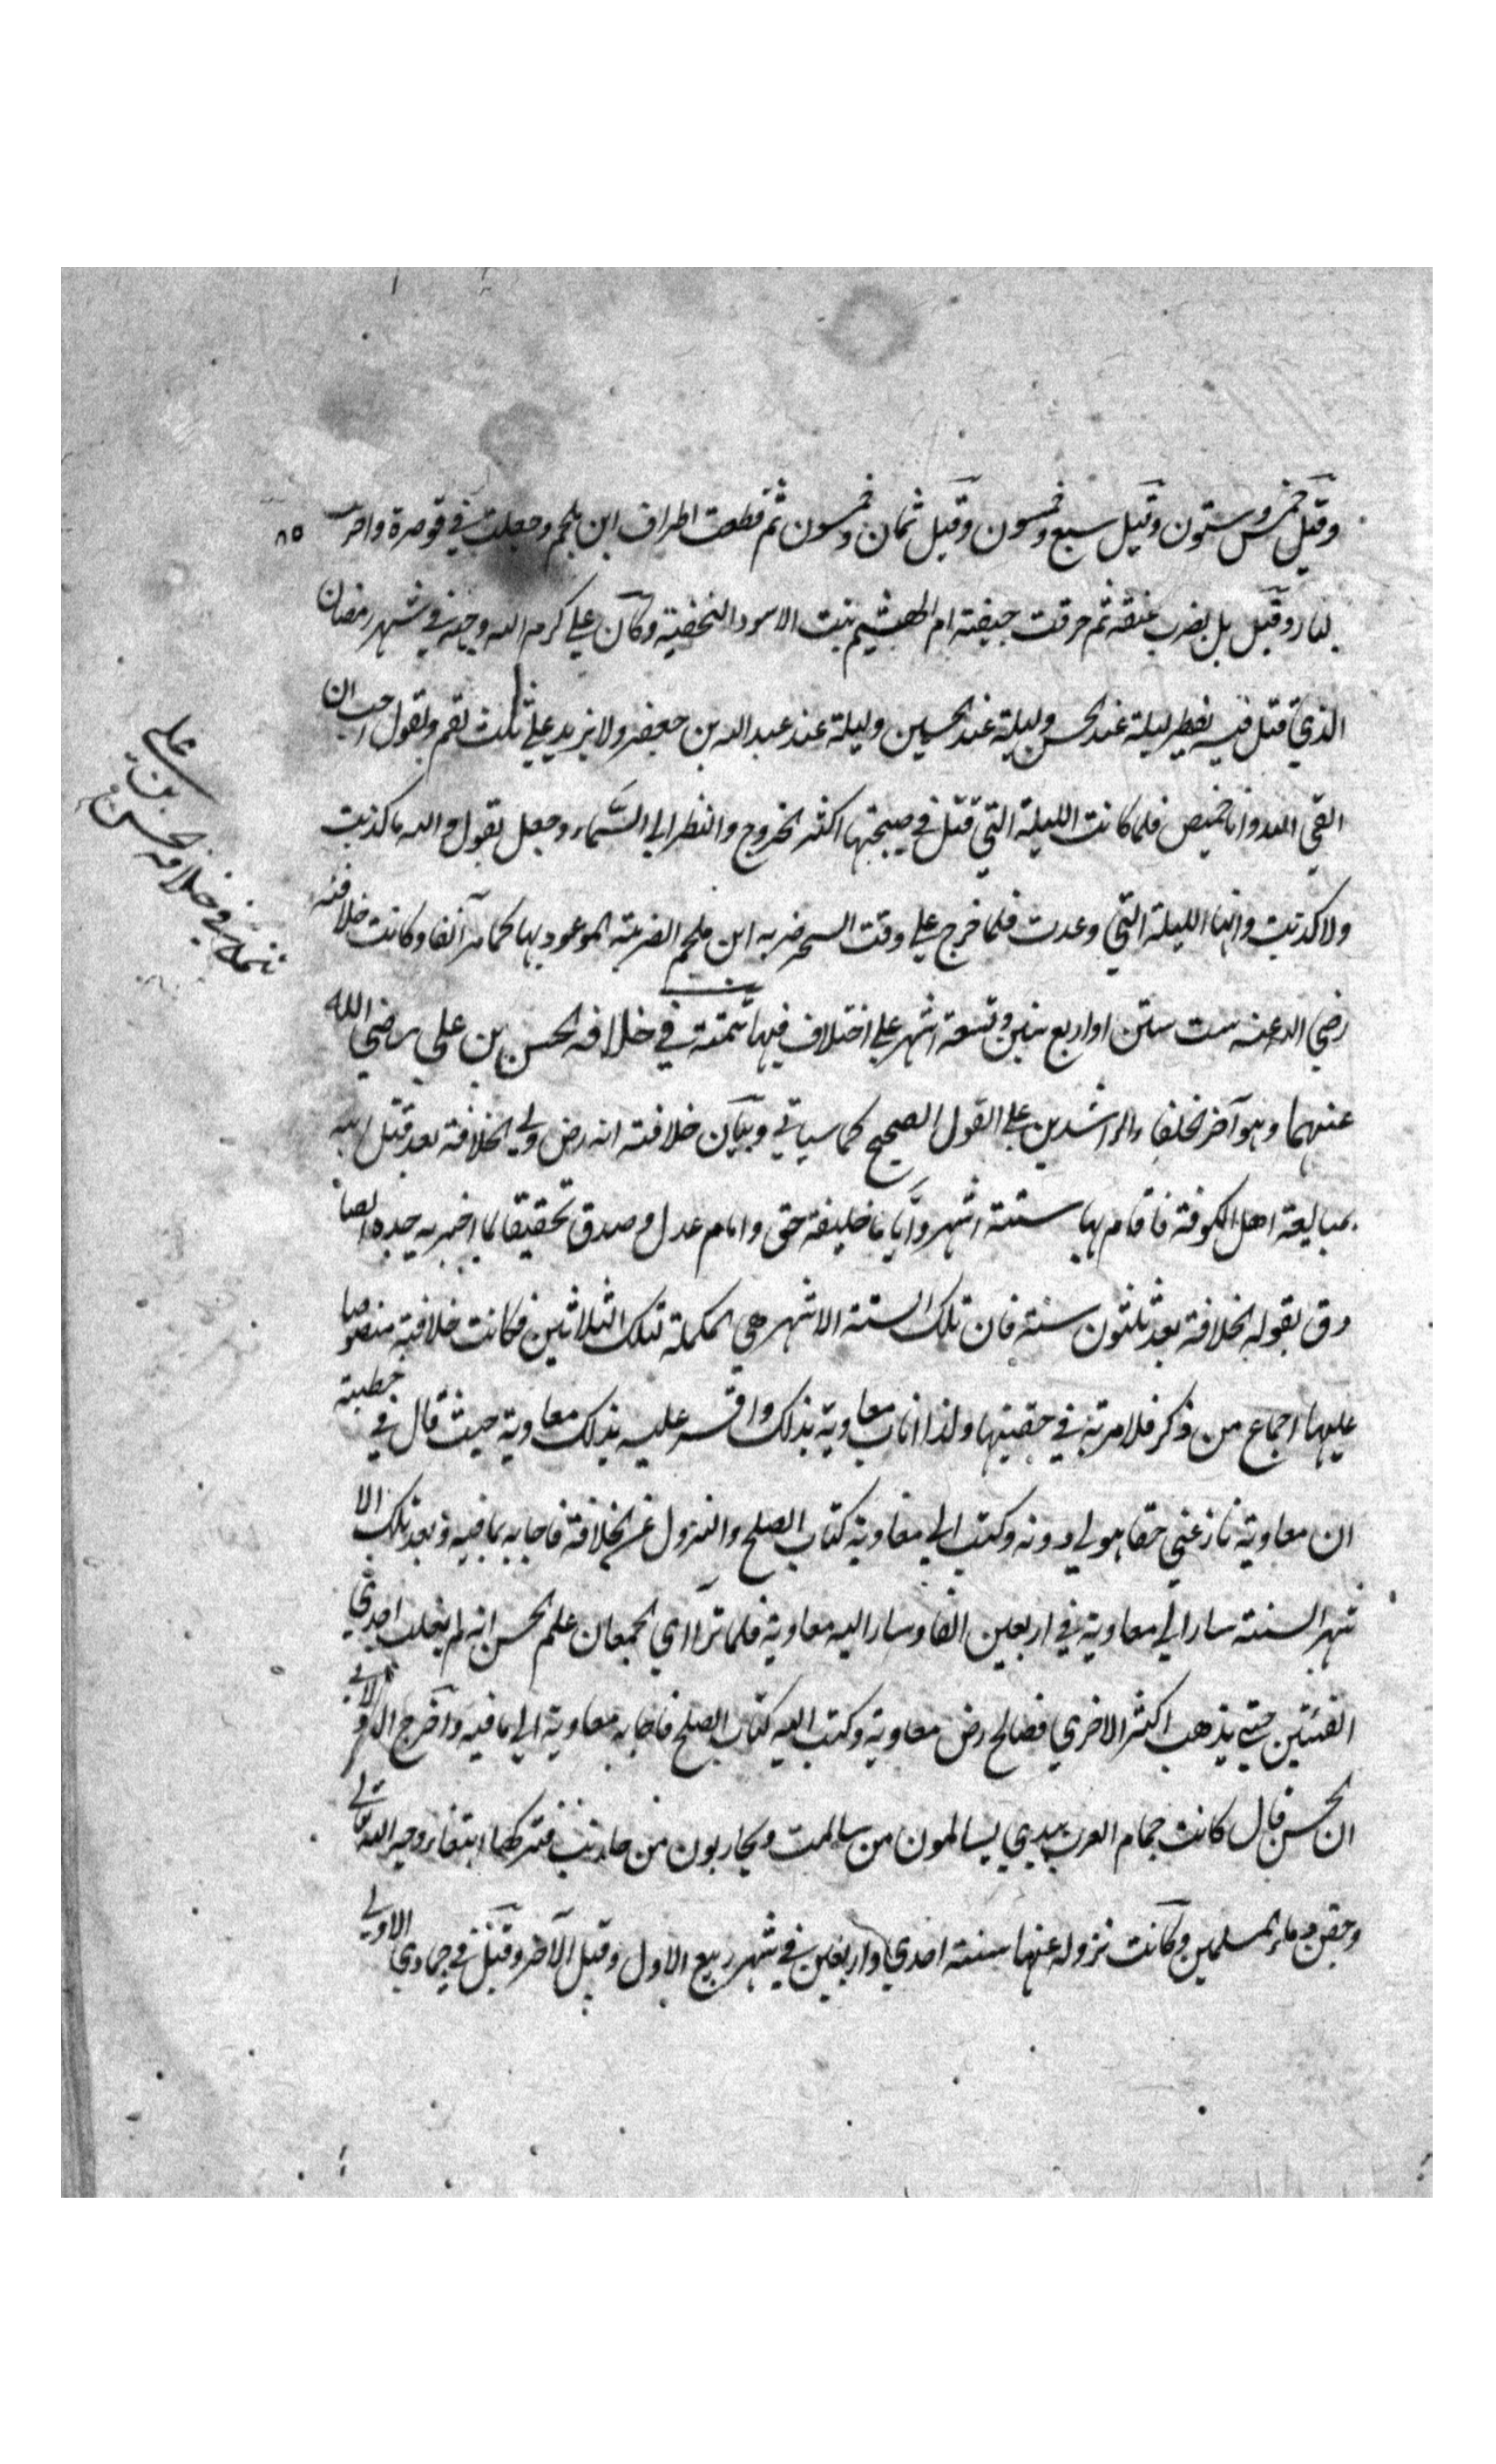 وقيل خمس وستون وقيل سبع وخمسون وقيل ثمان وخمسون ثم قطعت اطراف ابن ملجم وجعلت في قوصرة واحرقت
٨٥
بالنار وقيل بل بضرب عنقه ثم حرقت جيفته ام الهشيم بنت الاسود النخعية وكان علي كرم الله وجهه في شهر رمضان
الذي قتل فيه يفطر ليلة عند الحسن وليلة عند الحسين وليلة عند عبد الله بن جعفر ولا يزيد علي ثلث لقم ويقول احب ان
القي الله وانا خميص فلما كانت الليلة التي قتل في صبيحتها اكثر الخروج والنظر الي السماء وجعل يقول والله ما كذبت
ولا كذبت وانها الليلة التي وعدت فلما خرج علي وقت السحر ضربه ابن ملجم الضربة الموعود بها كما مر آنفا وكانت خلافته
رضي الله عنه ست سنين او اربع سنين وتسعة اشهر علي اختلاف فيها تتمة في خلافه الحسن بن علي رضي الله
عنهما وهو آخر الخلفاء الراشدين علي القول الصحيح كما سياتي وبيان خلافته انه رض ولي الخلافة بعد قتل ابيه
بمبايعة اهل الكوفة فاقام بها ستة اشهر واياما خليفة حق وامام عدل وصدق تحقيقا لما اخبر به جده الصا
دق بقوله الخلافة بعد ثلثون سنة فان تلك الستة الاشهر هي المكملة لتلك الثلاثين فكانت خلافته منصوصا
عليها اجماع من ذكر فلا مرية في حقيتها ولذا اناب معاوية بذلك واقر عليه بذلك معاوية حيث قال في خطبته
ان معاوية نازعني حقا هو لي دونه وكتب الي معاوية كتاب الصلح والنزول عن الخلافة فاجابه بما فيه وبعد تلك الا
شهر الستة سار الي معاوية في اربعين الفا وسار اليه معاوية فلما تراآي الجمعان علم الحسن انه لم يغلب احدي
الفئتين حتي يذهب اكثر الاخري فصالح رض معاوية وكتب اليه كتاب الصلح فاجابه معاوية الي ما فيه واخرج الدولابي
ان الحسن قال كانت جمام العرب بيدي يسالمون من سالمت ويحاربون من حاربت فتركها ابتغاء وجه الله تعالي
وحقن دماء المسلمين وكانت نزوله عنها سنة احدي واربعين في شهر ربيع الاول وقيل الآخر وقيل في جمادي الاولي
تتمة في خلافه الحسن بن علي